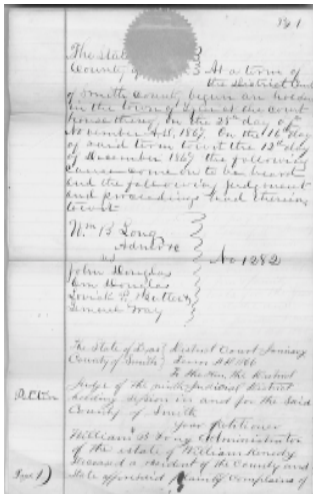 The State
County of
At a term of
the District Court
of Smith County begun and holden
in the town of Tyler at the court
house thereof, on the 25th day of
November A.D. 1867. On the 16th day
of said term to wit the 12th day
of December 1867 the following
cause came on to be heard
and the following judgment
and proceedings had therein
to wit
Wm B Long
Admr &c
vs
No 1282
John Douglas
Douglas
Samuel Way
The State of Texas District Court January
County of Smith Term AD 1866
To the Hon. the District
Petition
Judge of the ninth Judicial District
holding session in and for the said
County of Smith
Your Petitioner
William B Long administrator
of the estate of William Kennedy
deceased a resident of the County and
Page 1)
State aforesaid Plaintiff Complains of